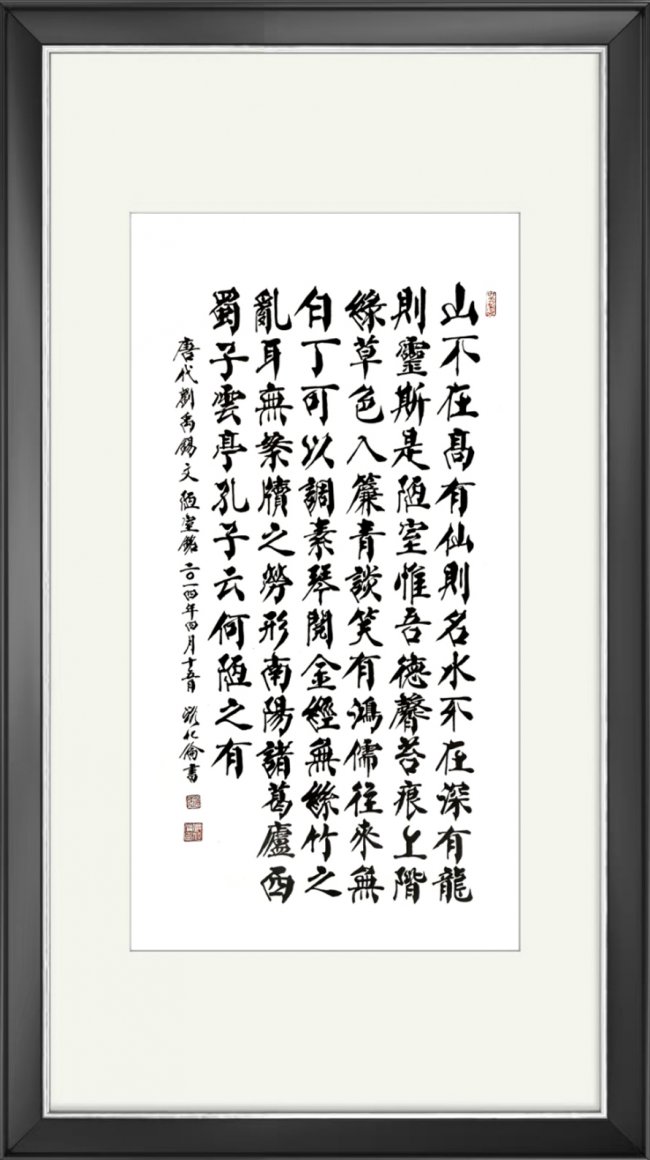 山不在髙有仙則名水不在深有龍
則靈斯是陋室惟吾德馨苔痕上階
綠草色入簾青談笑有鴻儒往來無
白丁可以調素琴閱金經無絲竹之
亂耳無案牘之勞形南陽諸葛廬西
蜀子雲亭孔子云何陋之有
唐代劉禹錫文陋室銘二〇一四年四月十五日 倫書